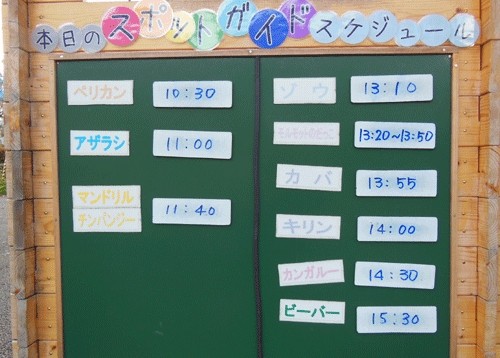 本日のスポットガイドスケジュール
ペリカン 10:30
アザラシ 11:00
マンドリル
チンパンジー 11:40
ゾウ 13:10
モルモットのだっこ 13:20~13:50
カバ 13:55
キリン 14:00
カンガルー 14:30
ビーバー 15:30